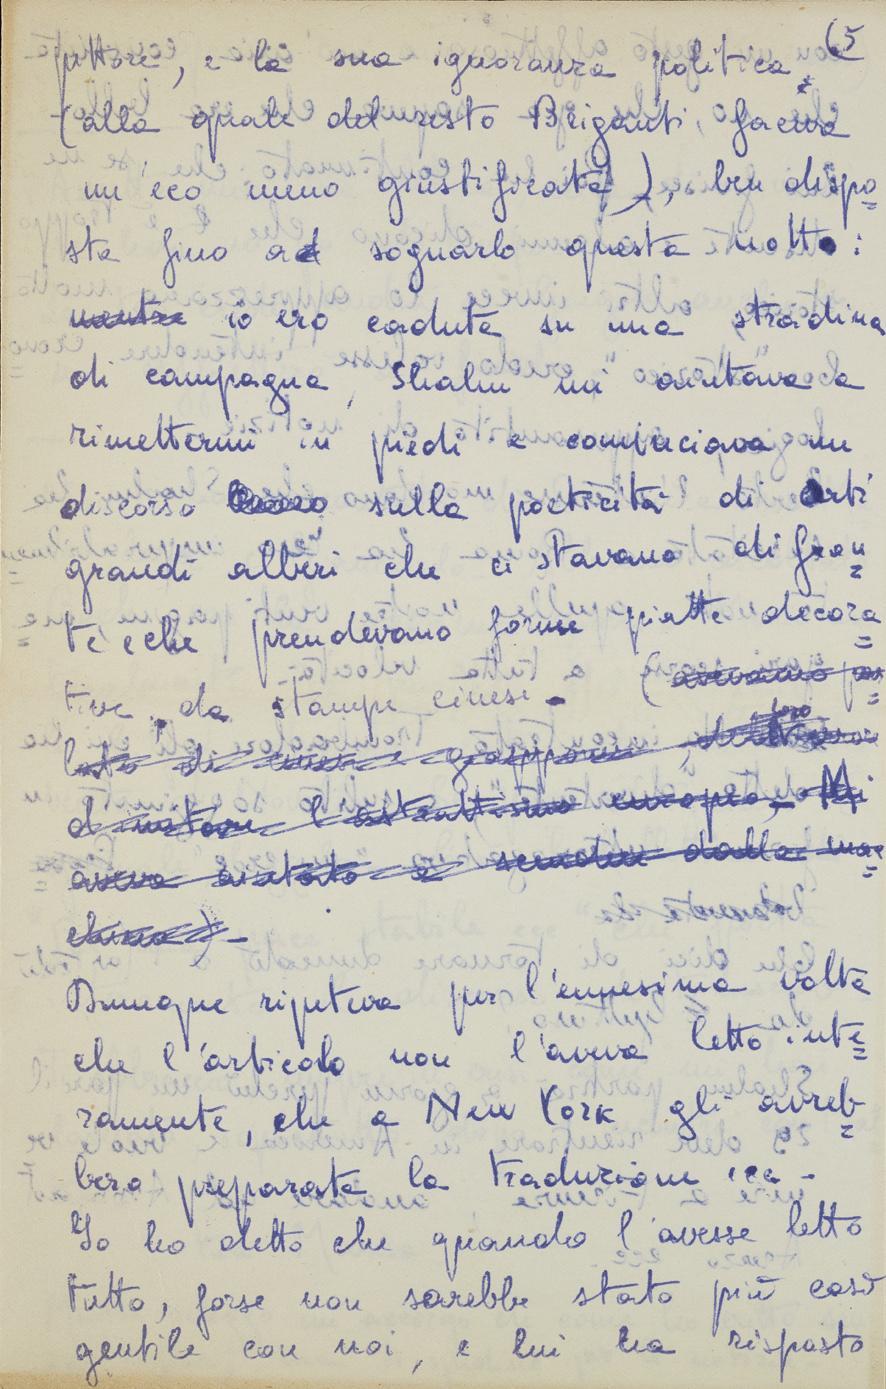 65
pittore, e la sua ignoranza politica
(alla quale del resto Briganti faceva
un'eco meno giustificata), ben dispo=
sta fino ad sognarlo questa notte:
mentre io ero caduta su una stradina
di campagna, Shahn mi aiutava a
rimettermi in piedi e cominciava un
discorso sulla poeticità di certi
grandi alberi che ci stavano di fron=
te e che prendevano forme piatte decora=
tive, da stampe cinesi. (avevamo par=
lato di giapponesi,
loro
d'imitare l'astrattismo europeo, - Mi
aveva aiutato a scendere dalla mac=
china) -
Dunque ripeteva per l'ennesima volta
che l'articolo non l'aveva letto inte=
ramente, che a New York gli avreb=
bero preparata la traduzione ecc -
Io ho detto che quando l'avesse letto
tutto, forse non sarebbe stato più così
gentile con noi, e lui ha risposto